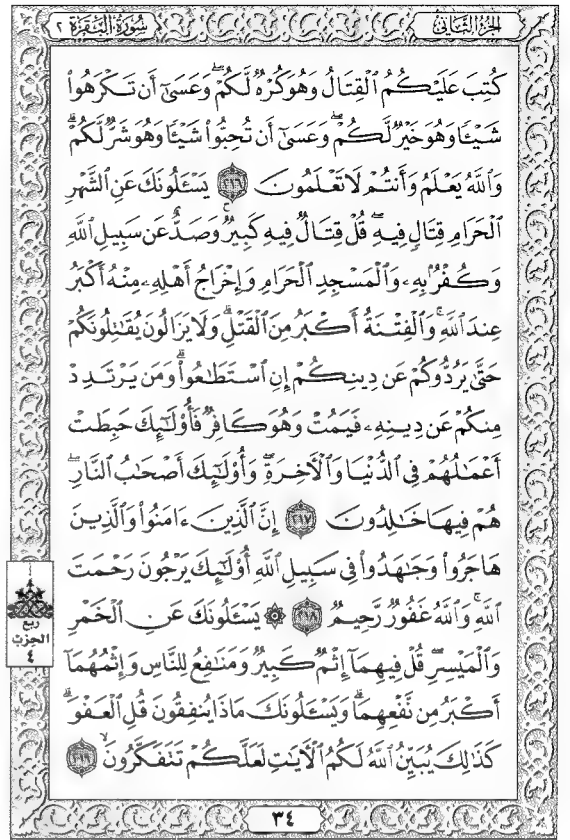 الجزء الثاني
سورة البقرة ٢
كُتِبَ عَلَيْكُمُ ٱلْقِتَالُ وَهُوَ كُرْهٌ لَّكُمْ ۖ وَعَسَىٰٓ أَن تَكْرَهُوا۟
شَيْـًٔا وَهُوَ خَيْرٌ لَّكُمْ ۖ وَعَسَىٰٓ أَن تُحِبُّوا۟ شَيْـًٔا وَهُوَ شَرٌّ لَّكُمْ ۗ
وَٱللَّهُ يَعْلَمُ وَأَنتُمْ لَا تَعْلَمُونَ ٢١٦ يَسْـَٔلُونَكَ عَنِ ٱلشَّهْرِ
ٱلْحَرَامِ قِتَالٍ فِيهِ ۖ قُلْ قِتَالٌ فِيهِ كَبِيرٌ ۖ وَصَدٌّ عَن سَبِيلِ ٱللَّهِ
وَكُفْرٌۢ بِهِۦ وَٱلْمَسْجِدِ ٱلْحَرَامِ وَإِخْرَاجُ أَهْلِهِۦ مِنْهُ أَكْبَرُ
عِندَ ٱللَّهِ ۚ وَٱلْفِتْنَةُ أَكْبَرُ مِنَ ٱلْقَتْلِ ۗ وَلَا يَزَالُونَ يُقَـٰتِلُونَكُمْ
حَتَّىٰ يَرُدُّوكُمْ عَن دِينِكُمْ إِنِ ٱسْتَطَـٰعُوا۟ ۚ وَمَن يَرْتَدِدْ
مِنكُمْ عَن دِينِهِۦ فَيَمُتْ وَهُوَ كَافِرٌ فَأُو۟لَـٰٓئِكَ حَبِطَتْ
أَعْمَـٰلُهُمْ فِى ٱلدُّنْيَا وَٱلْـَٔاخِرَةِ ۖ وَأُو۟لَـٰٓئِكَ أَصْحَـٰبُ ٱلنَّارِ ۖ
هُمْ فِيهَا خَـٰلِدُونَ ٢١٧ إِنَّ ٱلَّذِينَ ءَامَنُوا۟ وَٱلَّذِينَ
هَاجَرُوا۟ وَجَـٰهَدُوا۟ فِى سَبِيلِ ٱللَّهِ أُو۟لَـٰٓئِكَ يَرْجُونَ رَحْمَتَ
ٱللَّهِ ۚ وَٱللَّهُ غَفُورٌ رَّحِيمٌ ٢١٨ ۞ يَسْـَٔلُونَكَ عَنِ ٱلْخَمْرِ
وَٱلْمَيْسِرِ ۖ قُلْ فِيهِمَآ إِثْمٌ كَبِيرٌ وَمَنَـٰفِعُ لِلنَّاسِ وَإِثْمُهُمَآ
أَكْبَرُ مِن نَّفْعِهِمَا ۗ وَيَسْـَٔلُونَكَ مَاذَا يُنفِقُونَ قُلِ ٱلْعَفْوَ ۗ
كَذَٰلِكَ يُبَيِّنُ ٱللَّهُ لَكُمُ ٱلْـَٔايَـٰتِ لَعَلَّكُمْ تَتَفَكَّرُونَ ٢١٩
ربع
الحزب
٤
٣٤